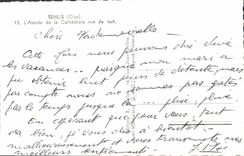 SENLIS (Oise)
15. L'Abside de la Cathédrale vue de nuit.
Chère Mademoiselle
Cette fois nous pouvons dire vive
les vacances... puisque mon mari a
pu obtenir huit jours de détente mais
par contre nous ne sommes pas gâtés
par le temps jusque là... pluie, pluie
En espérant que pour vous, tout
va bien, je vous dis à bientôt
malheureusement et vous transmets mes
meilleurs sentiments